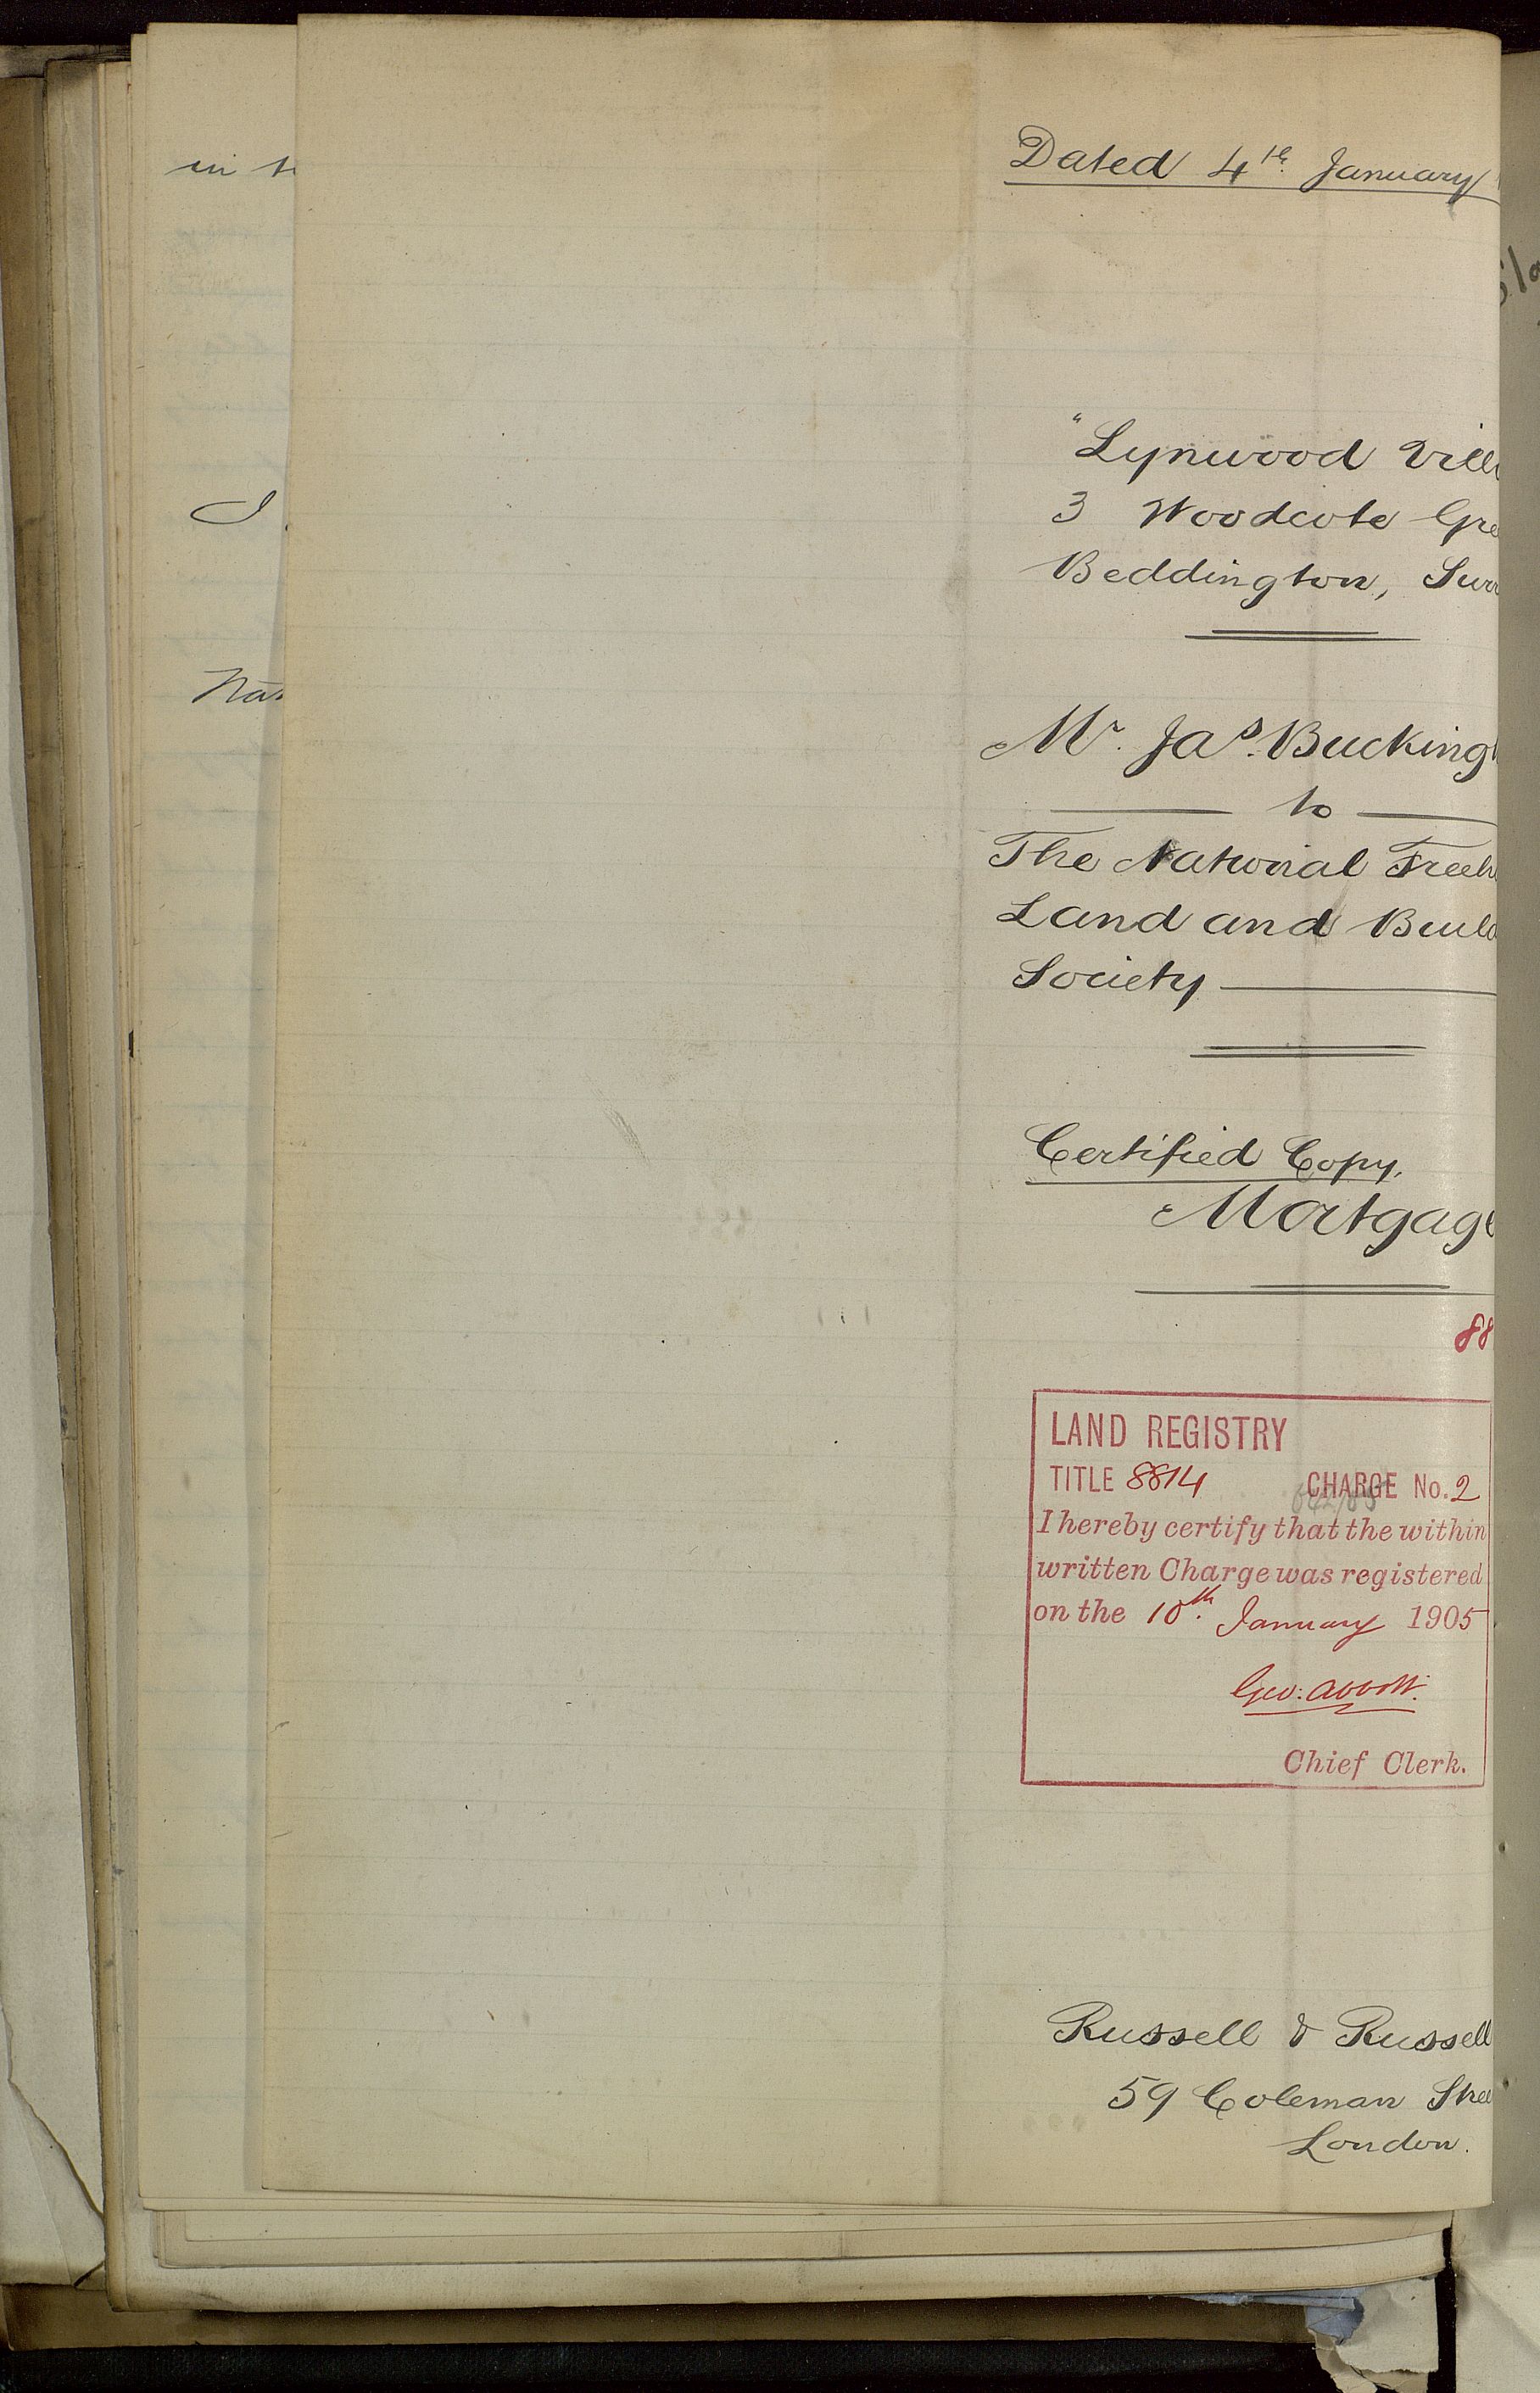 Dated 4th. January
"Lynwood Vill
3 Woodcote Gre
Beddington, Surr
Mr. Jas. Buckingh
to
The National Freeh
Land and Build
Society
Certified Copy.
Mortgage
88
LAND REGISTRY
TITLE 8814 CHARGE No. 2
I hereby certify that the within
written Charge was registered
on the 10th. January 1905
Geo: Abbott.
Chief Clerk.
Russell & Russell
59 Coleman Stree
London.
in
I